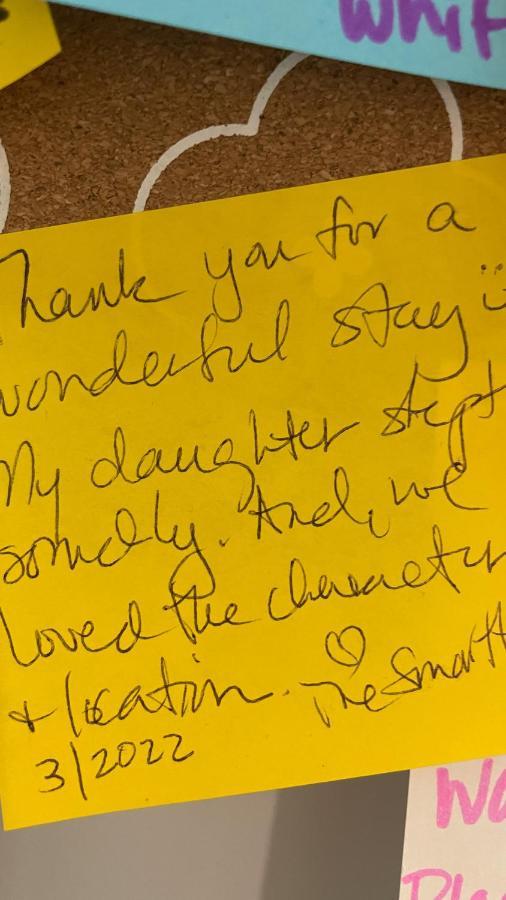 Whit
Thank you for a
wonderful stay
My daughter slept
soundly. And, we
loved the character
& location. ♡ The Smart
3/2022
Wo
Pla